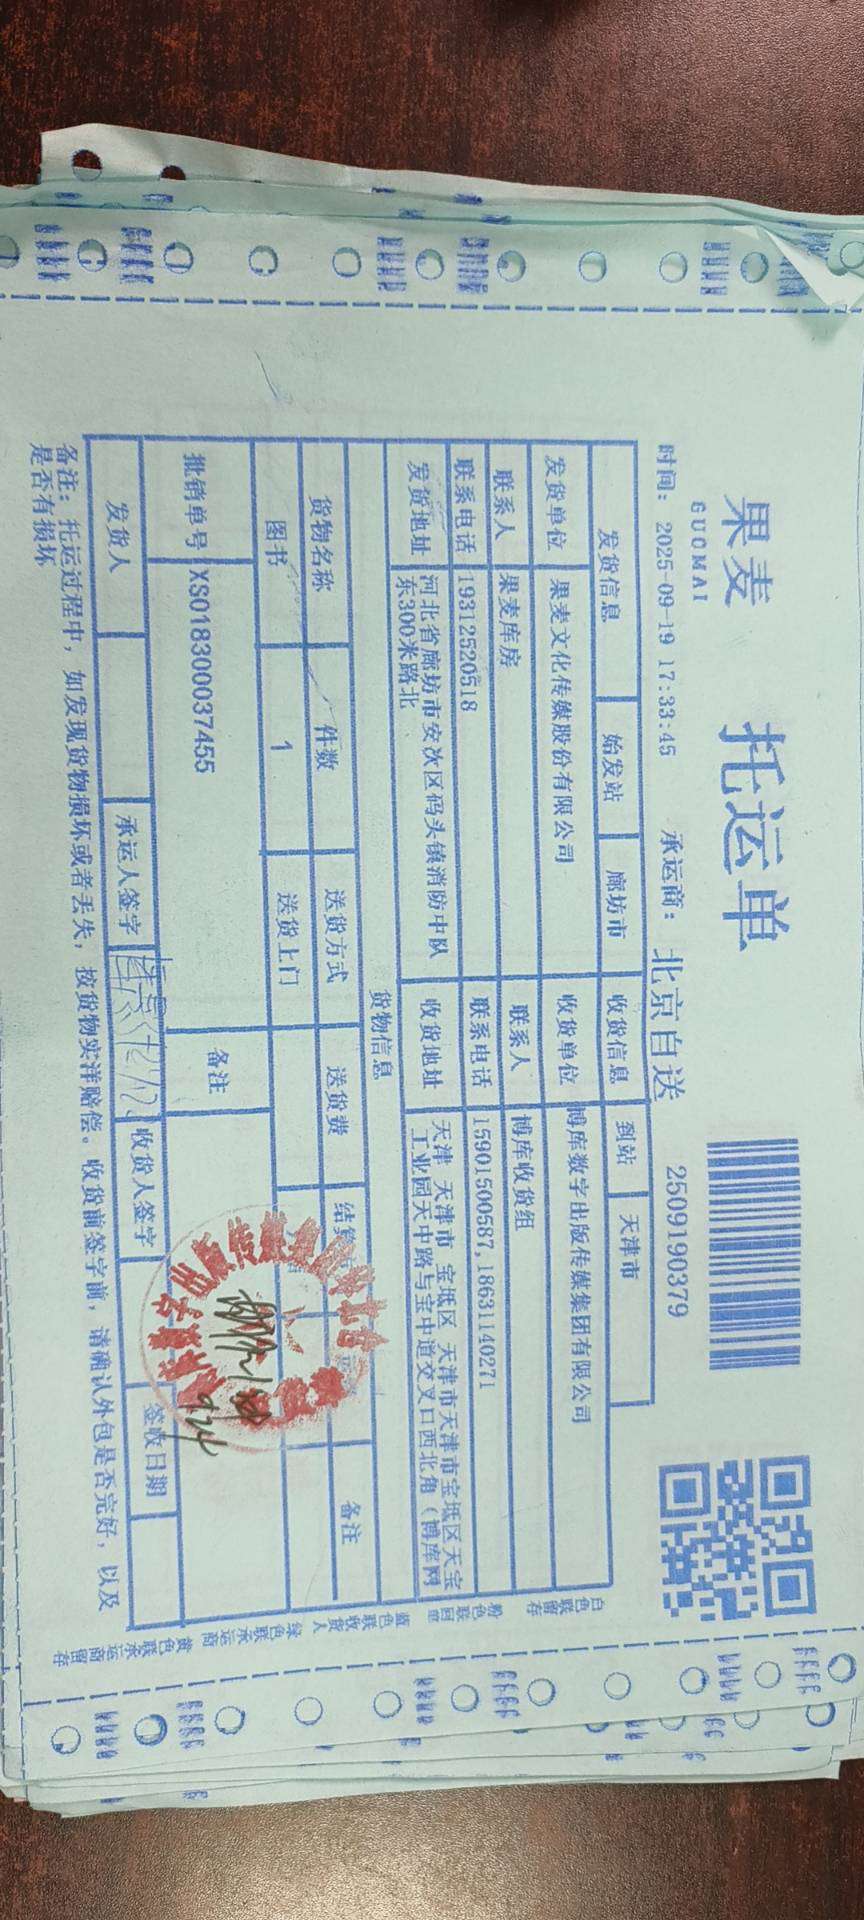 果麦
GUOMAI
托运单
时间: 2025-09-19 17:33:45 承运商: 北京自送 2509190379
发货信息 始发站 廊坊市 收货信息 到站 天津市
发货单位 果麦文化传媒股份有限公司 收货单位 博库数字出版传媒集团有限公司
联系人 果麦库房 联系人 博库收货组
联系电话 19312520518 联系电话 15901500587,18631140271
发货地址 河北省廊坊市安次区码头镇消防中队 收货地址 天津 天津市 宝坻区 天津市天津市宝坻区天宝
东300米路北 工业园天中路与宝中道交叉口西北角(博库网
货物信息
货物名称 件数 送货方式 送货费 备注
图书 1 送货上门
批销单号 XS018300037455 备注
发货人 承运人签字 收货人签字 签收日期
9.24
备注: 托运过程中, 如发现货物损坏或者丢失, 按货物实洋赔偿。收货前签字前, 请确认外包是否完好, 以及
是否有损坏
白色联留存 粉色联回单 蓝色联收货人 绿色联承运商 黄色联承运商留存